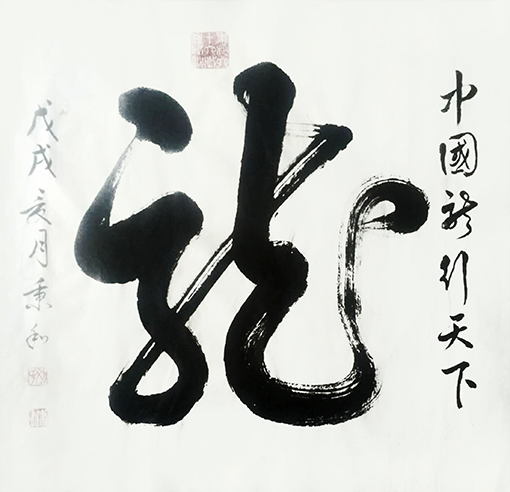 中國龍行天下
龍
戊戌亥月秉和